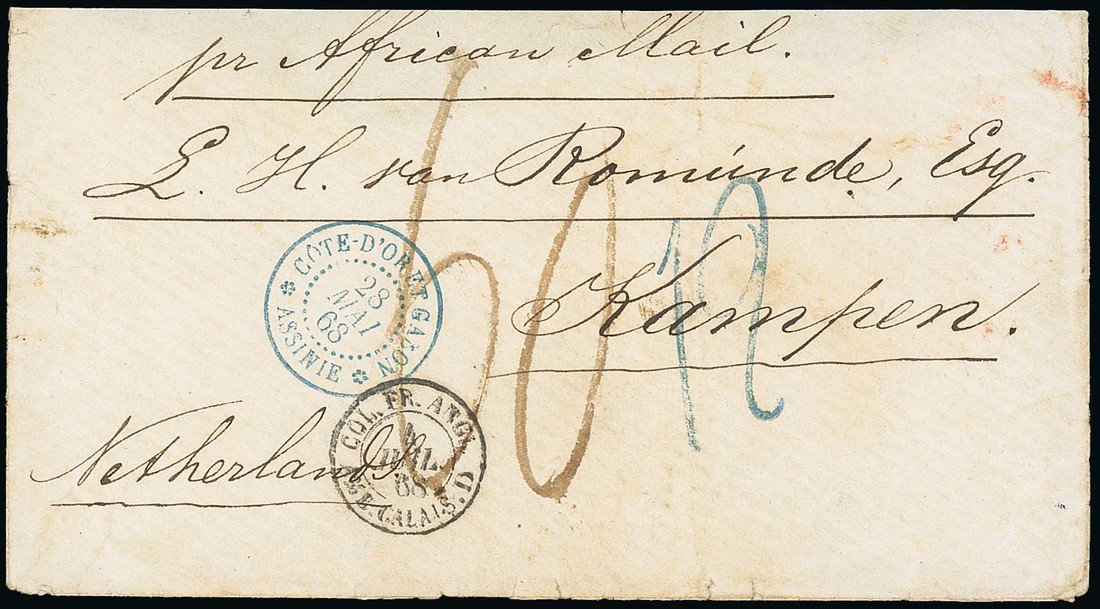 pr African Mail.
L. H. van Romúnde, Esq.
Kampen.
Netherlands
60
12
CÔTE-D'OR ET GABON
28
MAI
68
ASSINIE
COL. FR. ANGL.
4
JUIL.
68
CALAIS. D